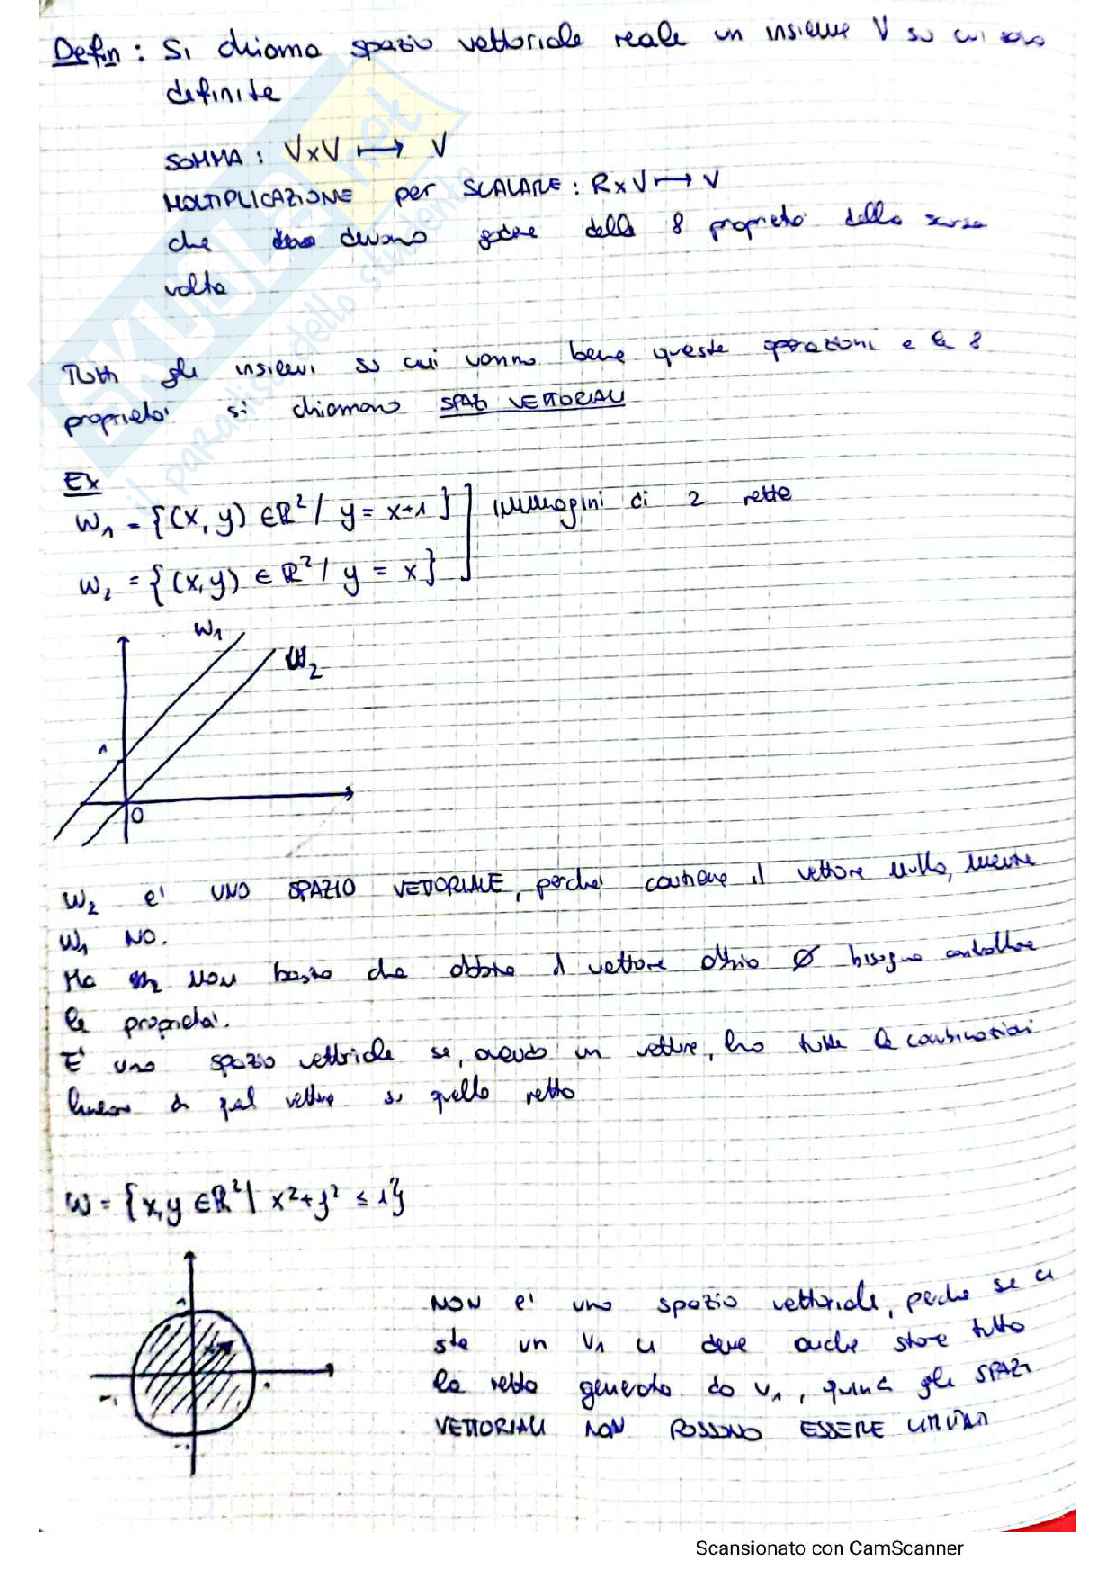 Defin : Si chiama spazio vettoriale reale un insieme V su cui sono
definite
SOMMA : V×V ⟼ V
MOLTIPLICAZIONE per SCALARE : R×V ⟼ V
che devono godere delle 8 proprietà della scorsa
volta
Tutti gli insiemi su cui vanno bene queste operazioni e le 8
proprietà si chiamano SPAZI VETTORIALI
Ex
W₁ = {(x, y) ∈ ℝ² / y = x+1 } ] immagini di 2 rette
W₂ = {(x,y) ∈ ℝ² / y = x}
W₁
W₂
1
0
W₂ e' UNO SPAZIO VETTORIALE, perché contiene il vettore nullo, mentre
W₁ NO.
Ma non basta che abbia il vettore ∅ bisogna controllare
le proprietà.
E' uno spazio vettoriale se, avendo un vettore, ho tutte le combinazioni
lineari di quel vettore su quella retta
W = {x,y ∈ ℝ² | x²+y² ≤ 1}
1
-1
NON e' uno spazio vettoriale, perché se ci
sta un v₁ ci deve anche stare tutta
la retta generata da v₁, quindi gli SPAZI
VETTORIALI NON POSSONO ESSERE LIMITATI
SKUOLA.net
il paradiso dello studente
Scansionato con CamScanner